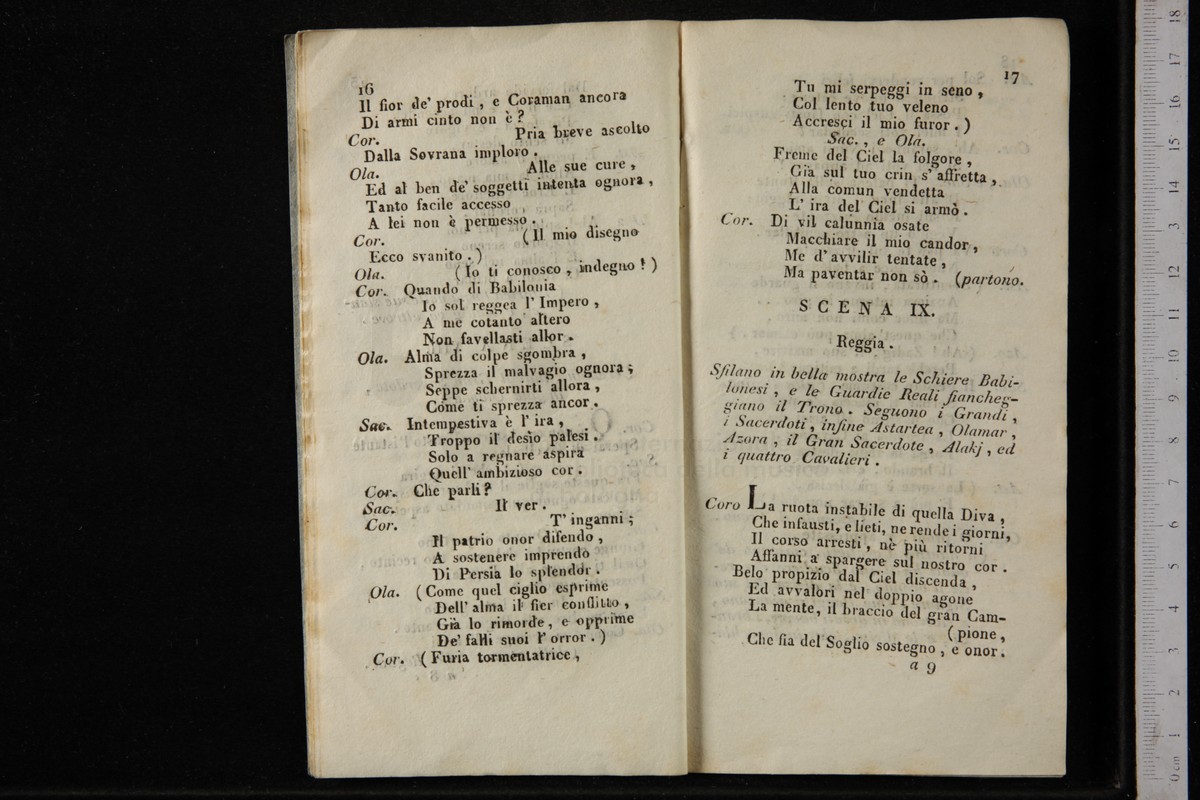 16
Il fior de' prodi, e Coraman ancora
Di armi cinto non è?
Cor. Pria breve ascolto
Dalla Sovrana imploro.
Ola. Alle sue cure,
Ed al ben de' soggetti intenta ognora,
Tanto facile accesso
A lei non è permesso.
Cor. (Il mio disegno
Ecco svanito.)
Ola. (Io ti conosco, indegno!)
Cor. Quando di Babilonia
Io sol reggea l'Impero,
A me cotanto altero
Non favellasti allor.
Ola. Alma di colpe sgombra,
Sprezza il malvagio ognora;
Seppe schernirti allora,
Come ti sprezza ancor.
Sac. Intempestiva è l'ira,
Troppo il desìo palesi.
Solo a regnare aspira
Quell' ambizioso cor.
Cor. Che parli?
Sac. Il ver.
Cor. T'inganni;
Il patrio onor difendo,
A sostenere imprendo
Di Persia lo splendor.
Ola. (Come quel ciglio esprime
Dell' alma il fier conflitto,
Già lo rimorde, e opprime
De' falli suoi l'orror.)
Cor. (Furia tormentatrice,
17
Tu mi serpeggi in seno,
Col lento tuo veleno
Accresci il mio furor.)
Sac., e Ola.
Freme del Ciel la folgore,
Già sul tuo crin s'affretta,
Alla comun vendetta
L'ira del Ciel si armò.
Cor. Di vil calunnia osate
Macchiare il mio candor,
Me d'avvilir tentate,
Ma paventar non sò. (partono.
SCENA IX.
Reggia.
Sfilano in bella mostra le Schiere Babi-
lonesi, e le Guardie Reali fiancheg-
giano il Trono. Seguono i Grandi,
i Sacerdoti, infine Astartea, Olamar,
Azora, il Gran Sacerdote, Alakj, ed
i quattro Cavalieri.
Coro La ruota instabile di quella Diva,
Che infausti, e lieti, ne rende i giorni,
Il corso arresti, nè più ritorni
Affanni a spargere sul nostro cor.
Belo propizio dal Ciel discenda,
Ed avvalori nel doppio agone
La mente, il braccio del gran Cam-
(pione,
Che sia del Soglio sostegno, e onor.
a 9